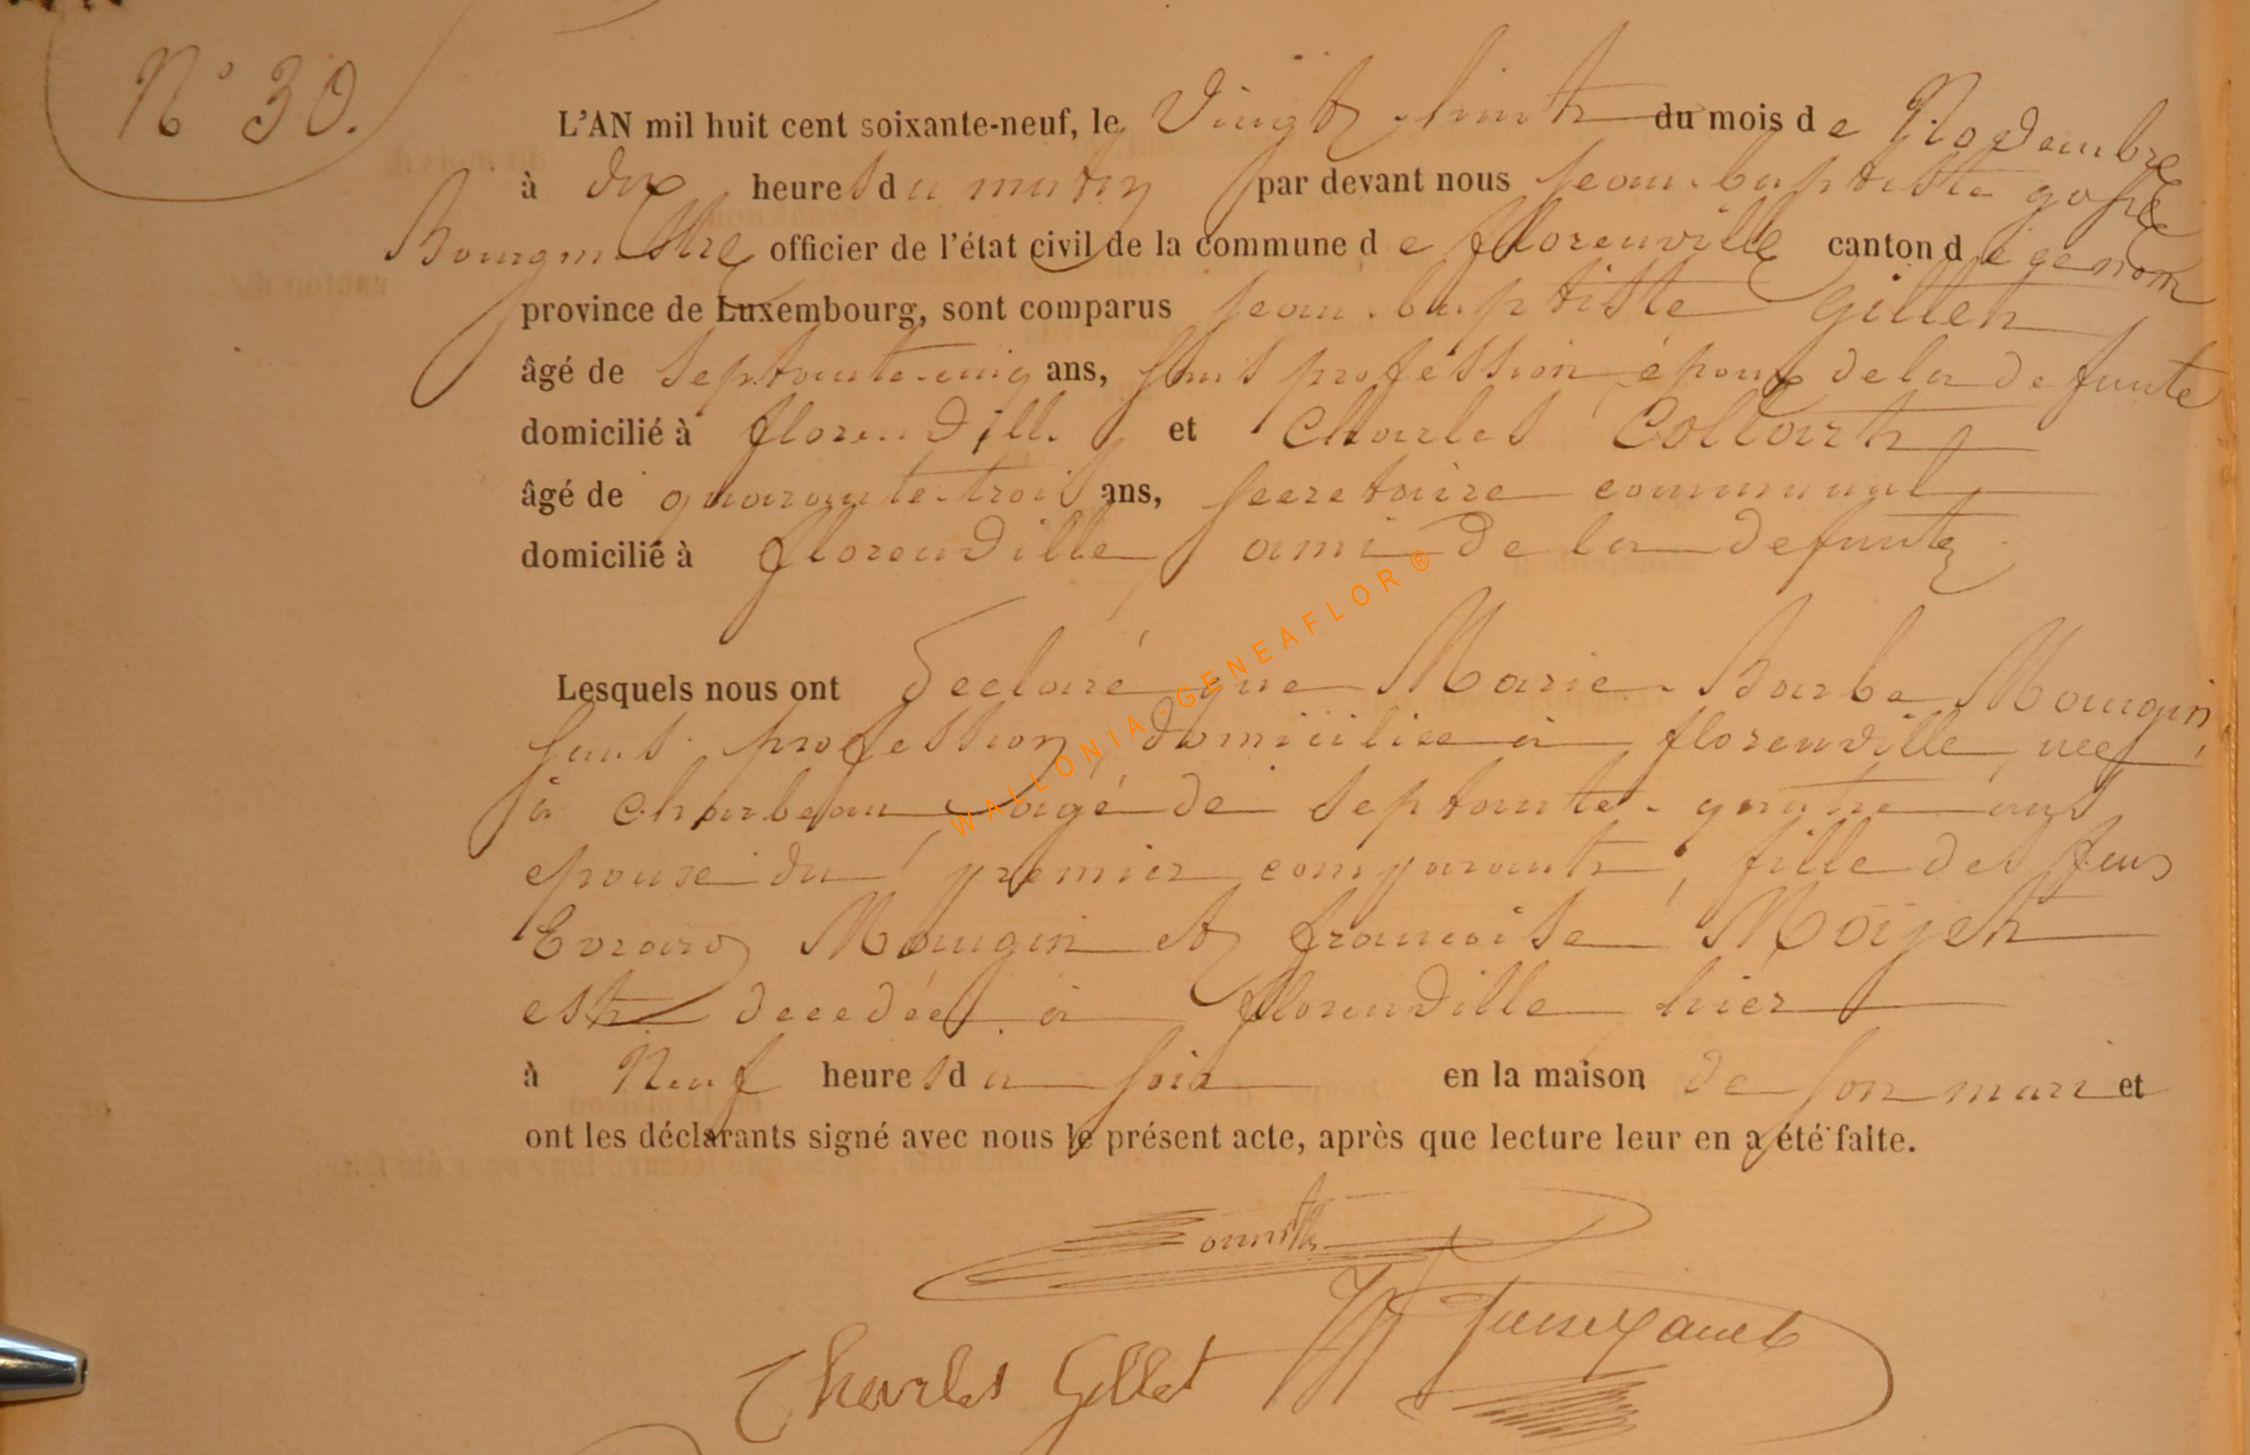 N° 30.
L'AN mil huit cent soixante-neuf, le Vingt huit du mois de Novembre
à dix heures du matin par devant nous jean-baptiste gofté
Bourgmestre officier de l'état civil de la commune de florenville canton de
province de Luxembourg, sont comparus jean-baptiste Gillet
âgé de septante-cinq ans, sans profession époux de la defunte
domicilié à florenville et Charles Collart
âgé de quarante-trois ans, secretaire communal
domicilié à florenville ami de la defunte
Lesquels nous ont declaré que Marie-Barbe Mougin
sans profession, domiciliée à florenville, née
à Charbeau, agé de septante-quatre ans
epouse du premier comparant, fille des feus
Evrard Mougin et francoise Moÿet
est decedée à florenville hier
à Neuf heures du soir en la maison de son mari et
ont les déclarants signé avec nous le présent acte, après que lecture leur en a été faite.
Charles Gillet
WALLONIA-GENEAFLOR®